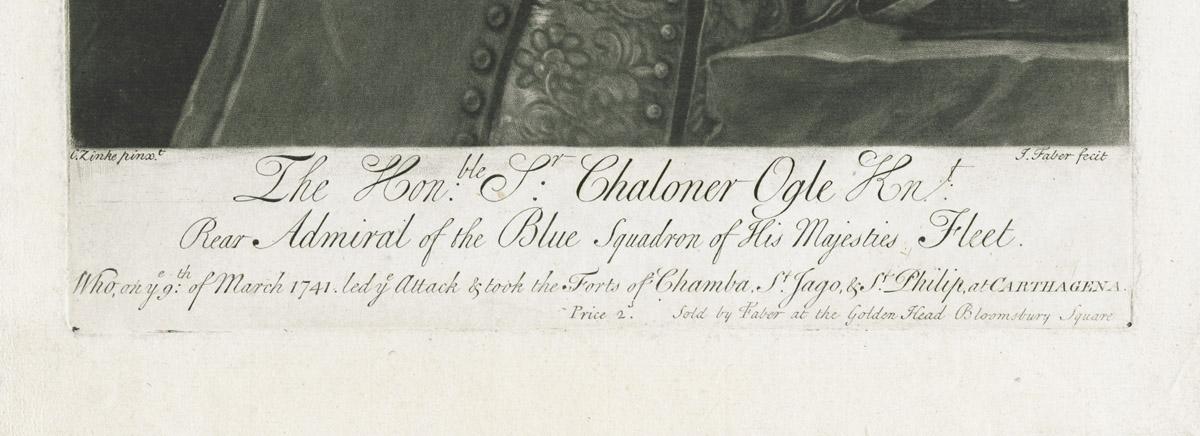 C. Zinke pinx.t
J. Faber fecit
The Hon.ble Sr. Chaloner Ogle Knt.
Rear Admiral of the Blue Squadron of His Majesties Fleet.
Who, on ye 9th of March 1741. led ye Attack & took the Forts of Chamba, St. Jago, & St. Philip, at CARTHAGENA.
Price 2s. Sold by Faber at the Golden Head Bloomsbury Square